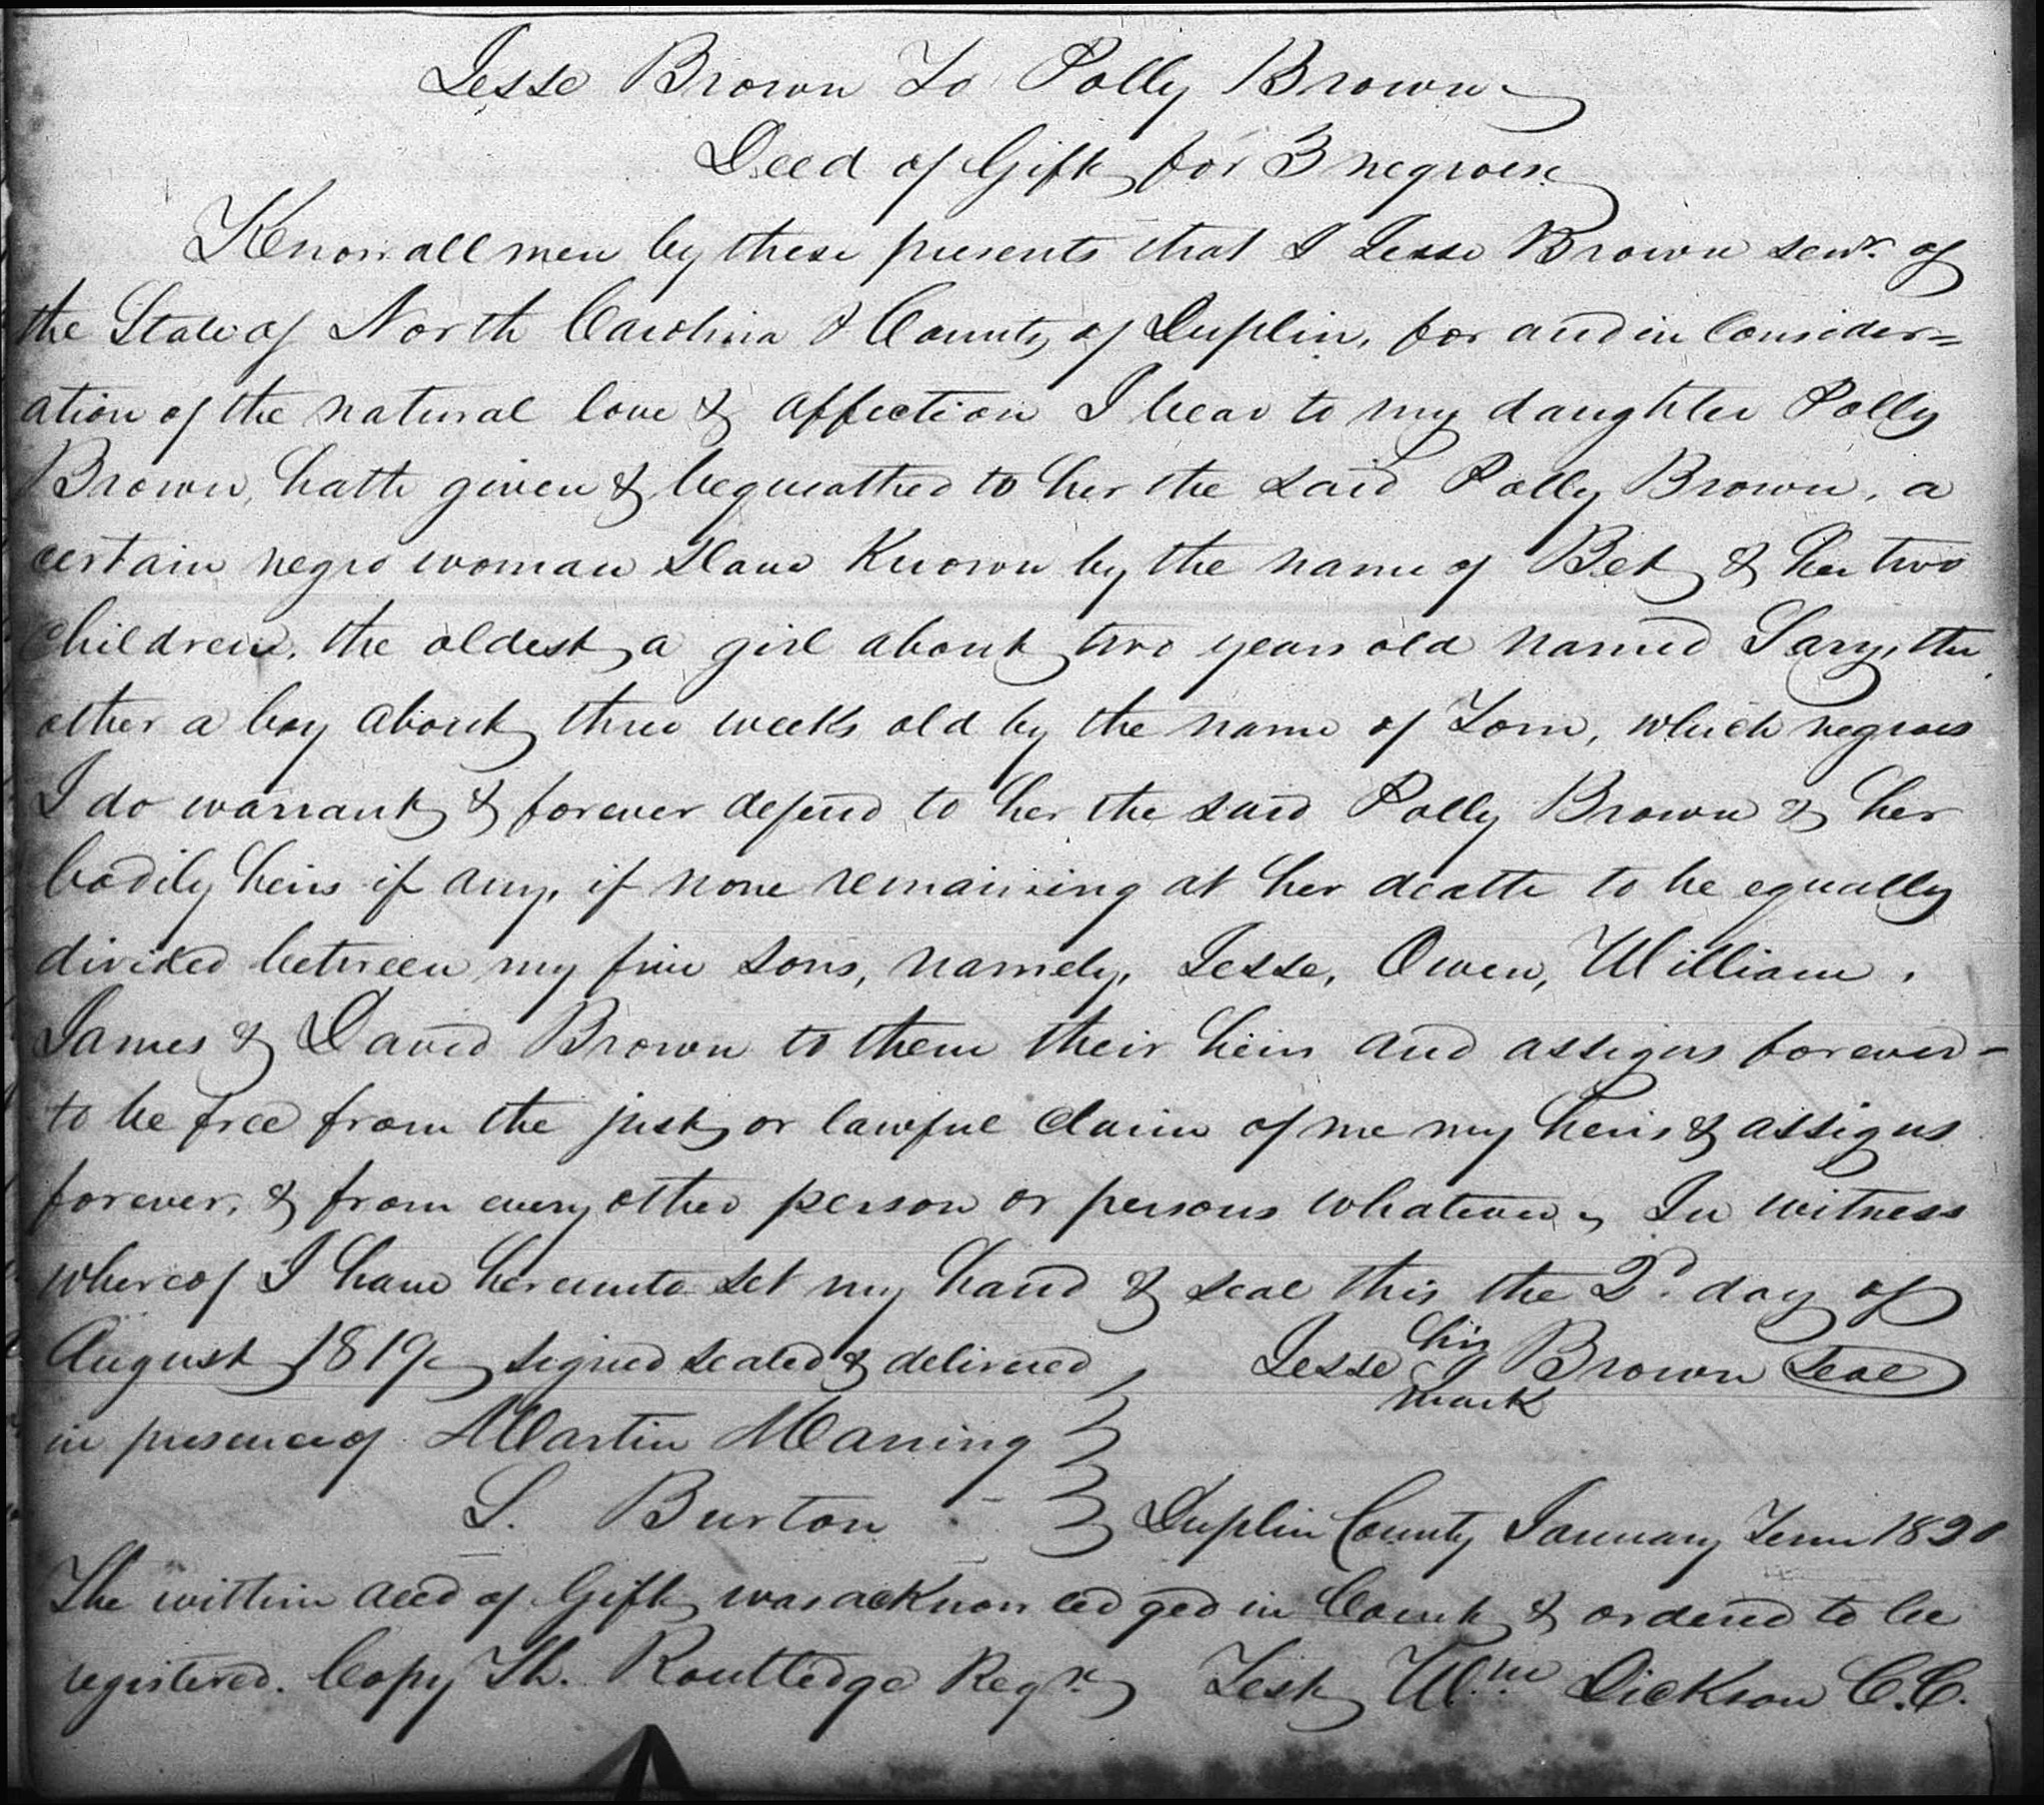 Jesse Brown To Polly Brown
Deed of Gift for 3 negroes
Know all men by these presents that I Jesse Brown senr. of
the State of North Carolina & County of Duplin, for and in Consider=
ation of the natural love & affection I bear to my daughter Polly
Brown, hath given & bequeathed to her the said Polly Brown, a
certain negro woman slave Known by the name of Bet & her two
Children, the oldest a girl about two years old named Sary, the
other a boy about three weeks old by the name of Tom, which negroes
I do warrant & forever defend to her the said Polly Brown & her
bodily heirs if any, if none remaining at her death to be equally
divided between my five sons, namely, Jesse, Owen, William,
James & David Brown to them their heirs and assigns forever-
to be free from the just or lawful claim of me my heirs & assigns
forever, & from every other person or persons whatever, In witness
whereof I have hereunto set my hand & seal this the 2d. day of
August 1819 signed sealed & delivered Jesse his mark Brown Seal
in presence of Martin Maning
S. Burton Duplin County January Term 1820
The within deed of Gift was acknowledged in Court & ordered to be
registered. Copy Th. Routledge Regr. Test Wm Dickson C.C.